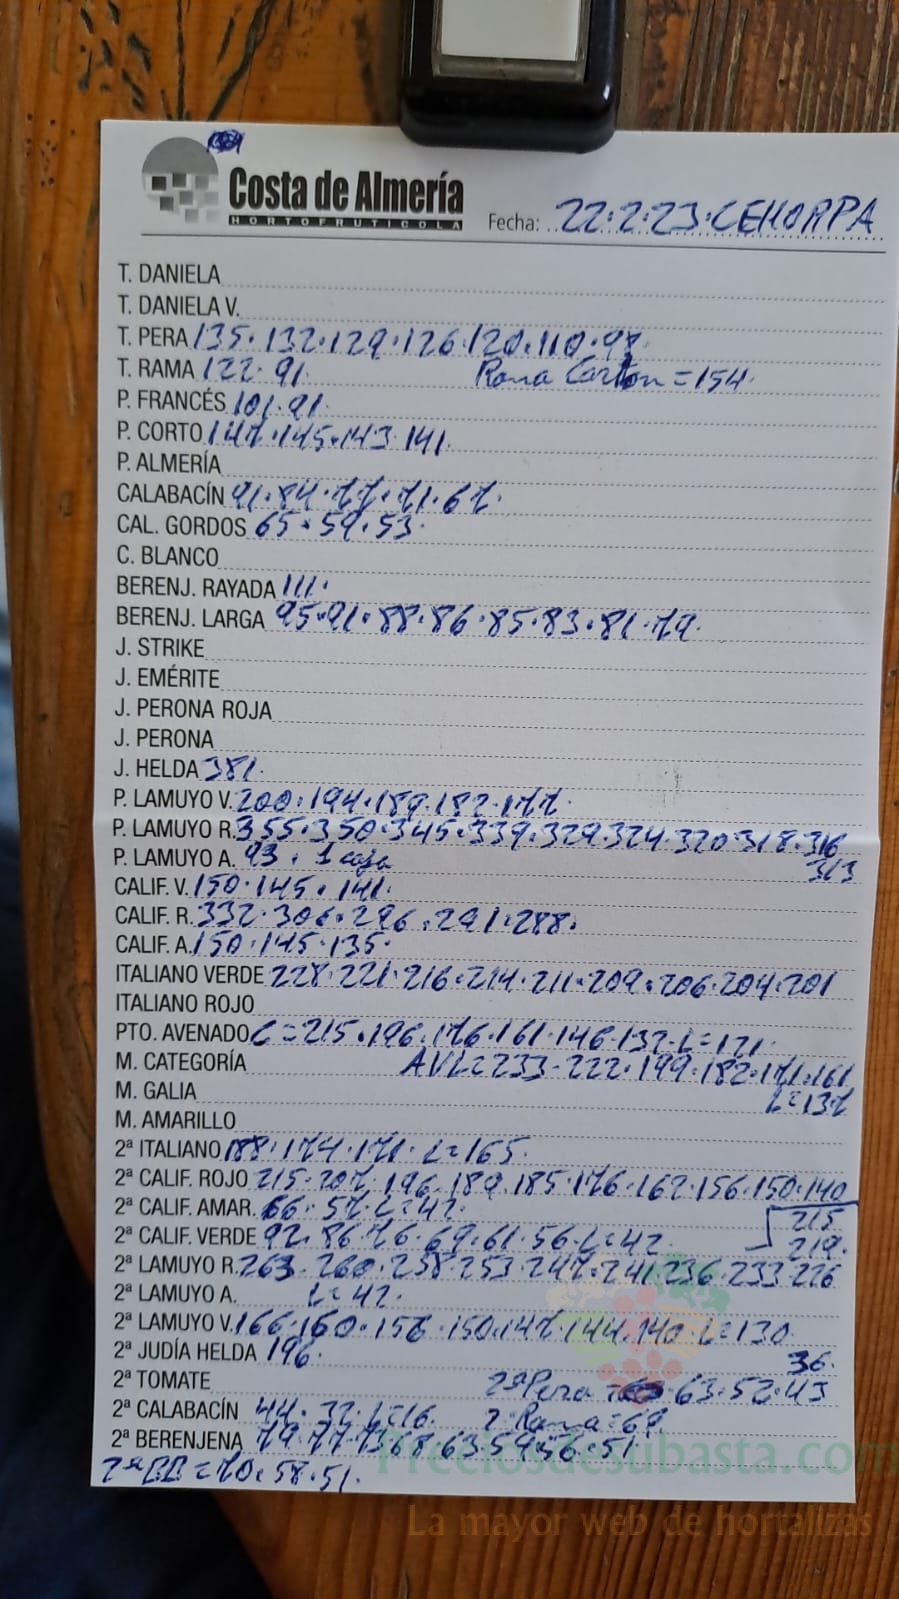 Costa de Almería
HORTOFRUTÍCOLA
Fecha: 22·2·23·CEHORPA
T. DANIELA
T. DANIELA V.
T. PERA 135·132·129·126·120·110·98
T. RAMA 122·91· Rama Carton=154·
P. FRANCÉS 101·91·
P. CORTO 147·145·143·141·
P. ALMERÍA
CALABACÍN 91·84·77·71·67·
CAL. GORDOS 65·59·53·
C. BLANCO
BERENJ. RAYADA 111·
BERENJ. LARGA 95·91·88·86·85·83·81·79·
J. STRIKE
J. EMÉRITE
J. PERONA ROJA
J. PERONA
J. HELDA 381·
P. LAMUYO V. 200·194·189·182·177·
P. LAMUYO R. 355·350·345·339·329·324·320·318·316
313
P. LAMUYO A. 93·1 caja
CALIF. V. 150·145·141·
CALIF. R. 332·306·296·291·288·
CALIF. A. 150·145·135·
ITALIANO VERDE 228·221·216·214·211·209·206·204·201
ITALIANO ROJO
PTO. AVENADO C=215·196·176·161·146·132·L=121·
M. CATEGORÍA AVL=233·222·199·182·171·161
M. GALIA L=137
M. AMARILLO
2ª ITALIANO 188·174·171·L=165·
2ª CALIF. ROJO 215·207·196·189·185·176·162·156·150·140
2ª CALIF. AMAR. 66·57·L=42· 215
2ª CALIF. VERDE 92·86·76·69·61·56·L=42· 219·
2ª LAMUYO R. 263·260·258·253·247·241·236·233·226
2ª LAMUYO A. L=42·
2ª LAMUYO V. 166·160·156·150·147·144·140·L=130
2ª JUDÍA HELDA 196· 36·
2ª TOMATE 2ª Pera = 63·52·43
2ª CALABACÍN 44·32·L=16· 2ª Rama=67
2ª BERENJENA 79·77·73·68·63·59·56·51
2ª BB=70·58·51·
Preciosdesubasta.com
La mayor web de hortalizas